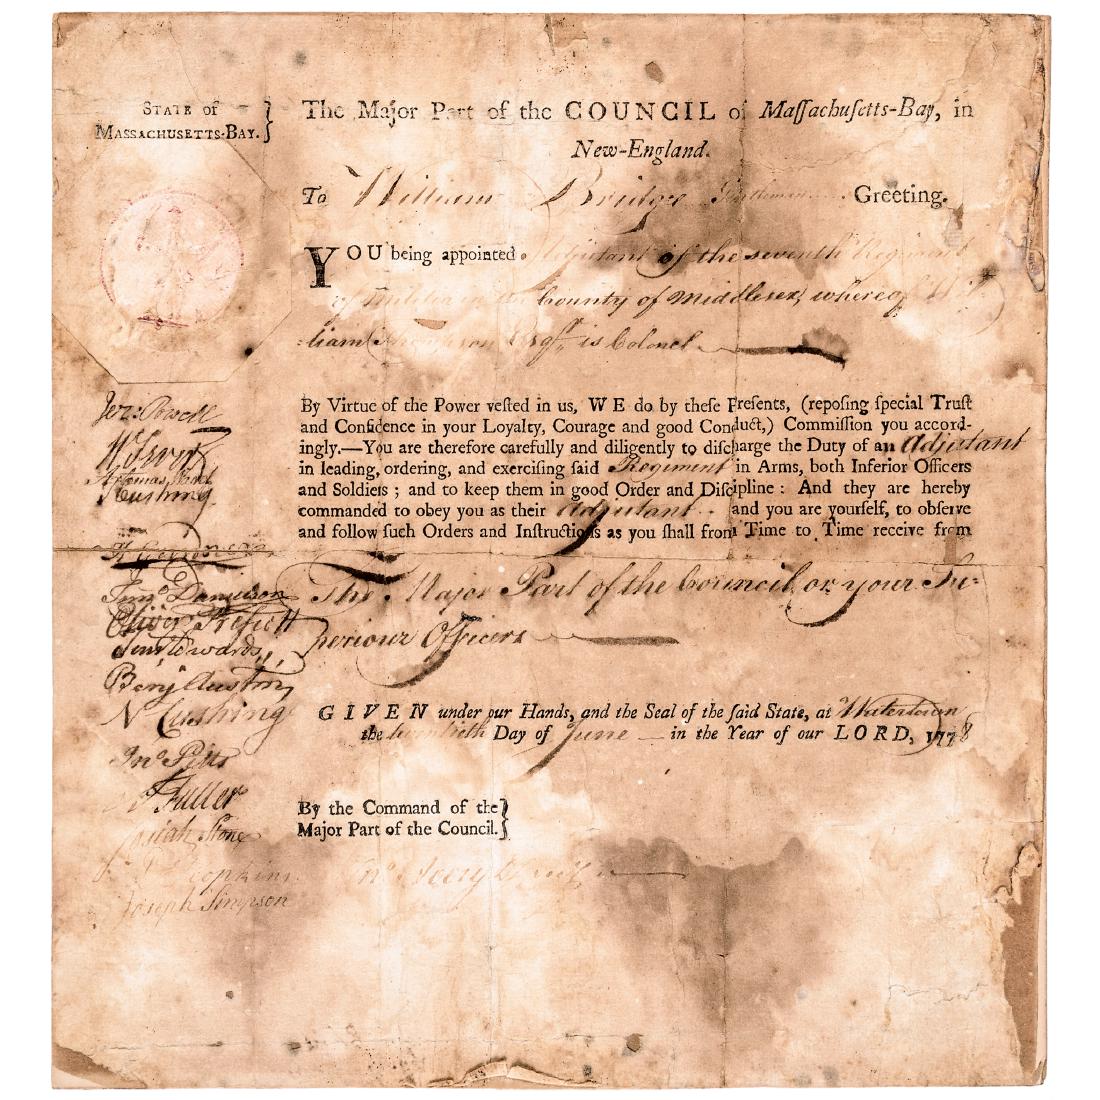 STATE of
MASSACHUSETTS-BAY. }
The Major Part of the COUNCIL of Maſſachuſetts-Bay, in
New-England.
To William Bridge Gentleman Greeting.
YOU being appointed Adjutant of the seventh Regiment
of Militia in the County of Middlesex, whereof Wil
liam Thompson Esqr. is Colonel
By Virtue of the Power veſted in us, WE do by theſe Preſents, (repoſing ſpecial Truſt
and Confidence in your Loyalty, Courage and good Conduct,) Commiſſion you accord-
ingly.—You are therefore carefully and diligently to diſcharge the Duty of an Adjutant
in leading, ordering, and exerciſing ſaid Regiment in Arms, both Inferior Officers
and Soldiers ; and to keep them in good Order and Diſcipline : And they are hereby
commanded to obey you as their Adjutant and you are yourſelf, to obſerve
and follow ſuch Orders and Inſtructions as you ſhall from Time to Time receive from
The Major Part of the Council or your Su-
periour Officers
GIVEN under our Hands, and the Seal of the ſaid State, at Watertown
the twentieth Day of June in the Year of our LORD, 1778
By the Command of the
Major Part of the Council. }
Jno Avery
Jer: Powell
T Cushing
Oliver Prescott
Benj Austin
N Cushing
Jno Pitts
Fuller
Josiah Stone
Hopkins
Joseph Simpson